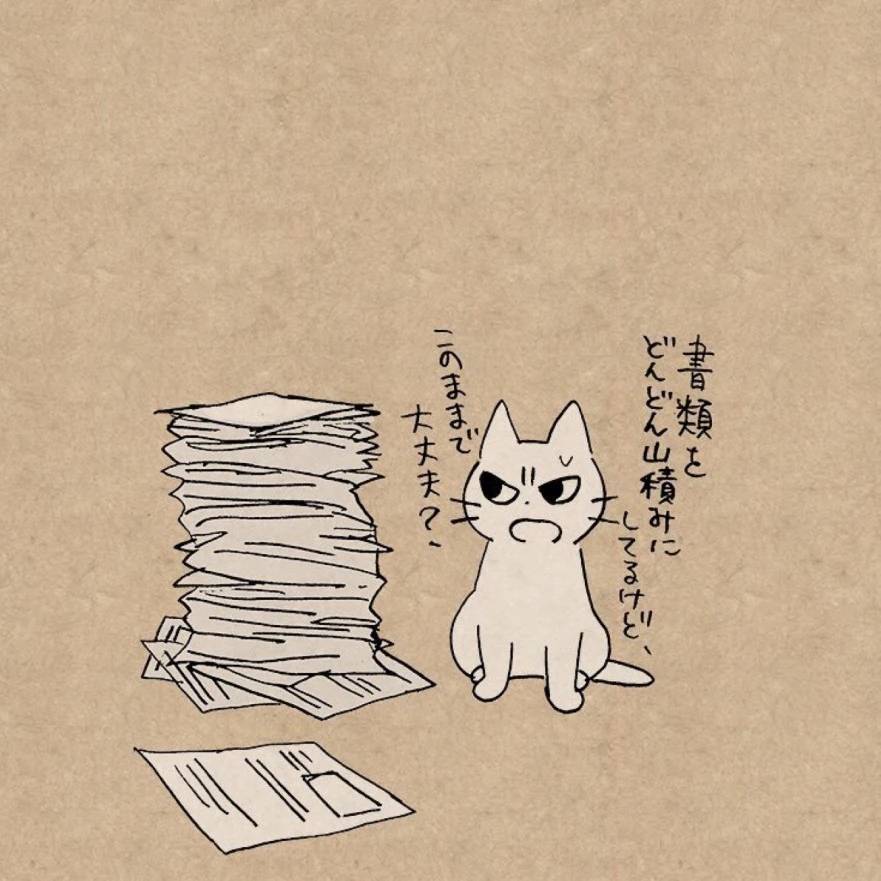 書類を
どんどん山積みに
してるけど、
このままで
大丈夫?